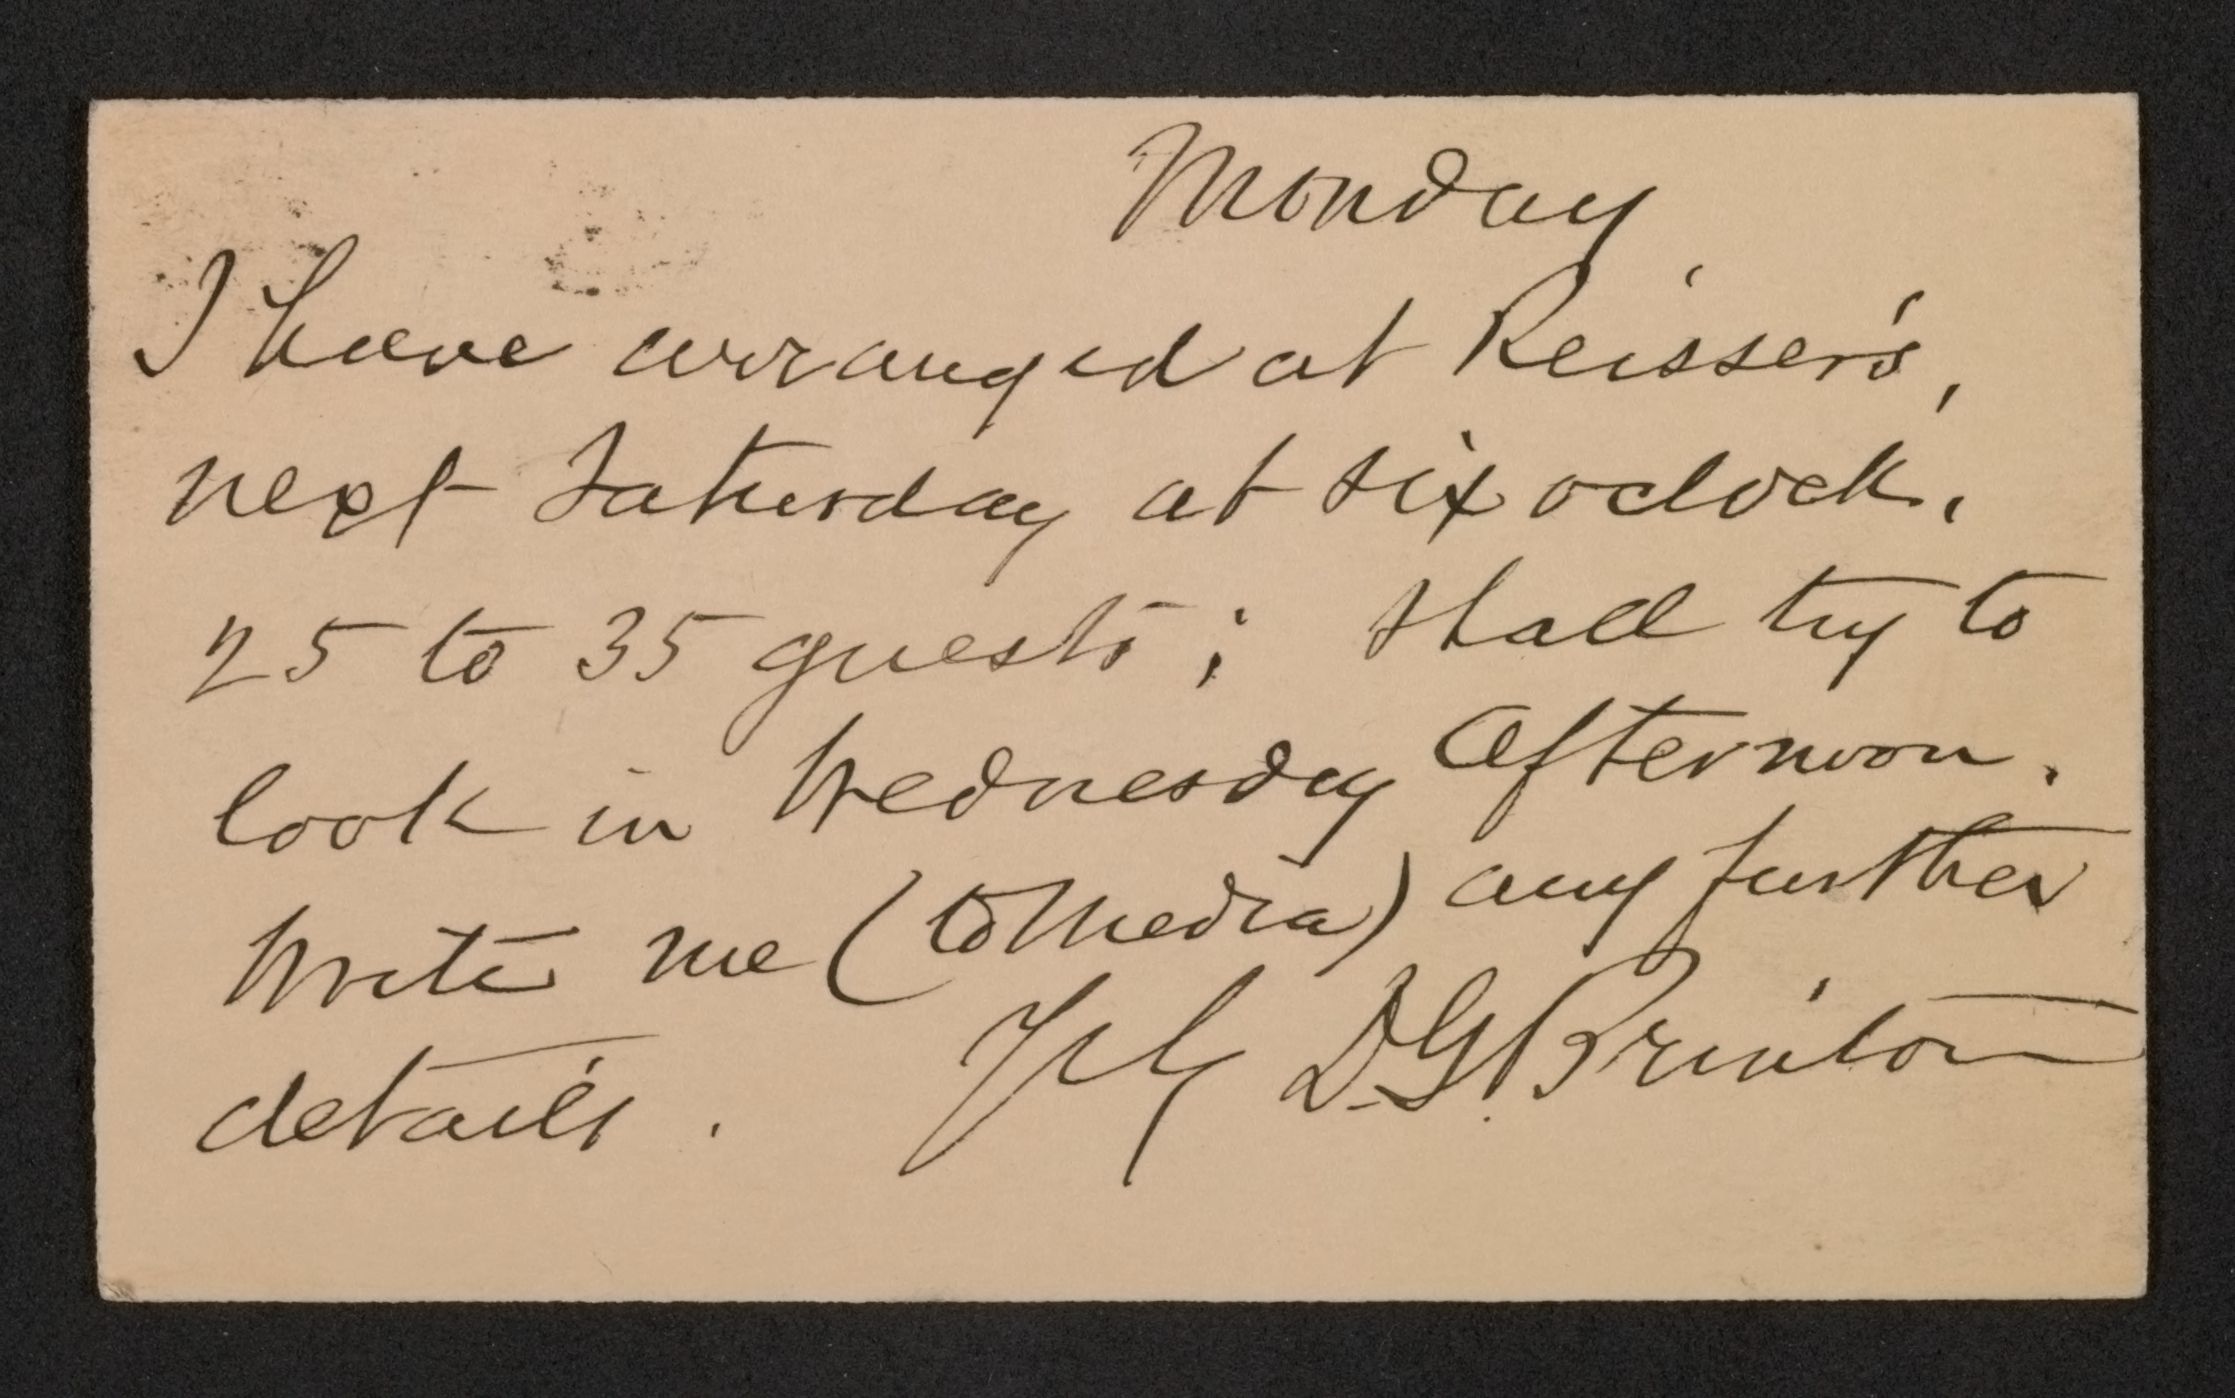 Monday
I have arranged at Reisser's,
next Saturday at six oclock.
25 to 35 guests; shall try to
look in Wednesday afternoon.
Write me (to Media) any further
details. D.G. Brinton